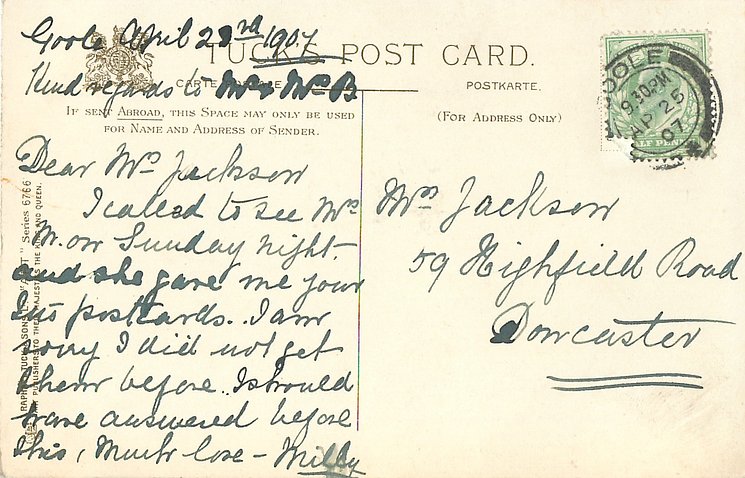 Goole April 23rd 1907
TUCK'S POST CARD.
Kind regards to Mr & Mrs B
CARTE
POSTKARTE.
IF SENT ABROAD, THIS SPACE MAY ONLY BE USED
FOR NAME AND ADDRESS OF SENDER.
(FOR ADDRESS ONLY)
Dear Mrs Jackson
I called to see Mrs
M. on Sunday night.
and she gave me your
two postcards. I am
sorry I did not get
them before. I should
have answered before
this, Much love - Milly
Mrs Jackson
59 Highfield Road
Doncaster
GOOLE
9.30PM
AP 25
07
HALF PENNY
RAPHAEL TUCK & SONS' " " Series 6766
PUBLISHERS TO THEIR MAJESTIES THE KING AND QUEEN.